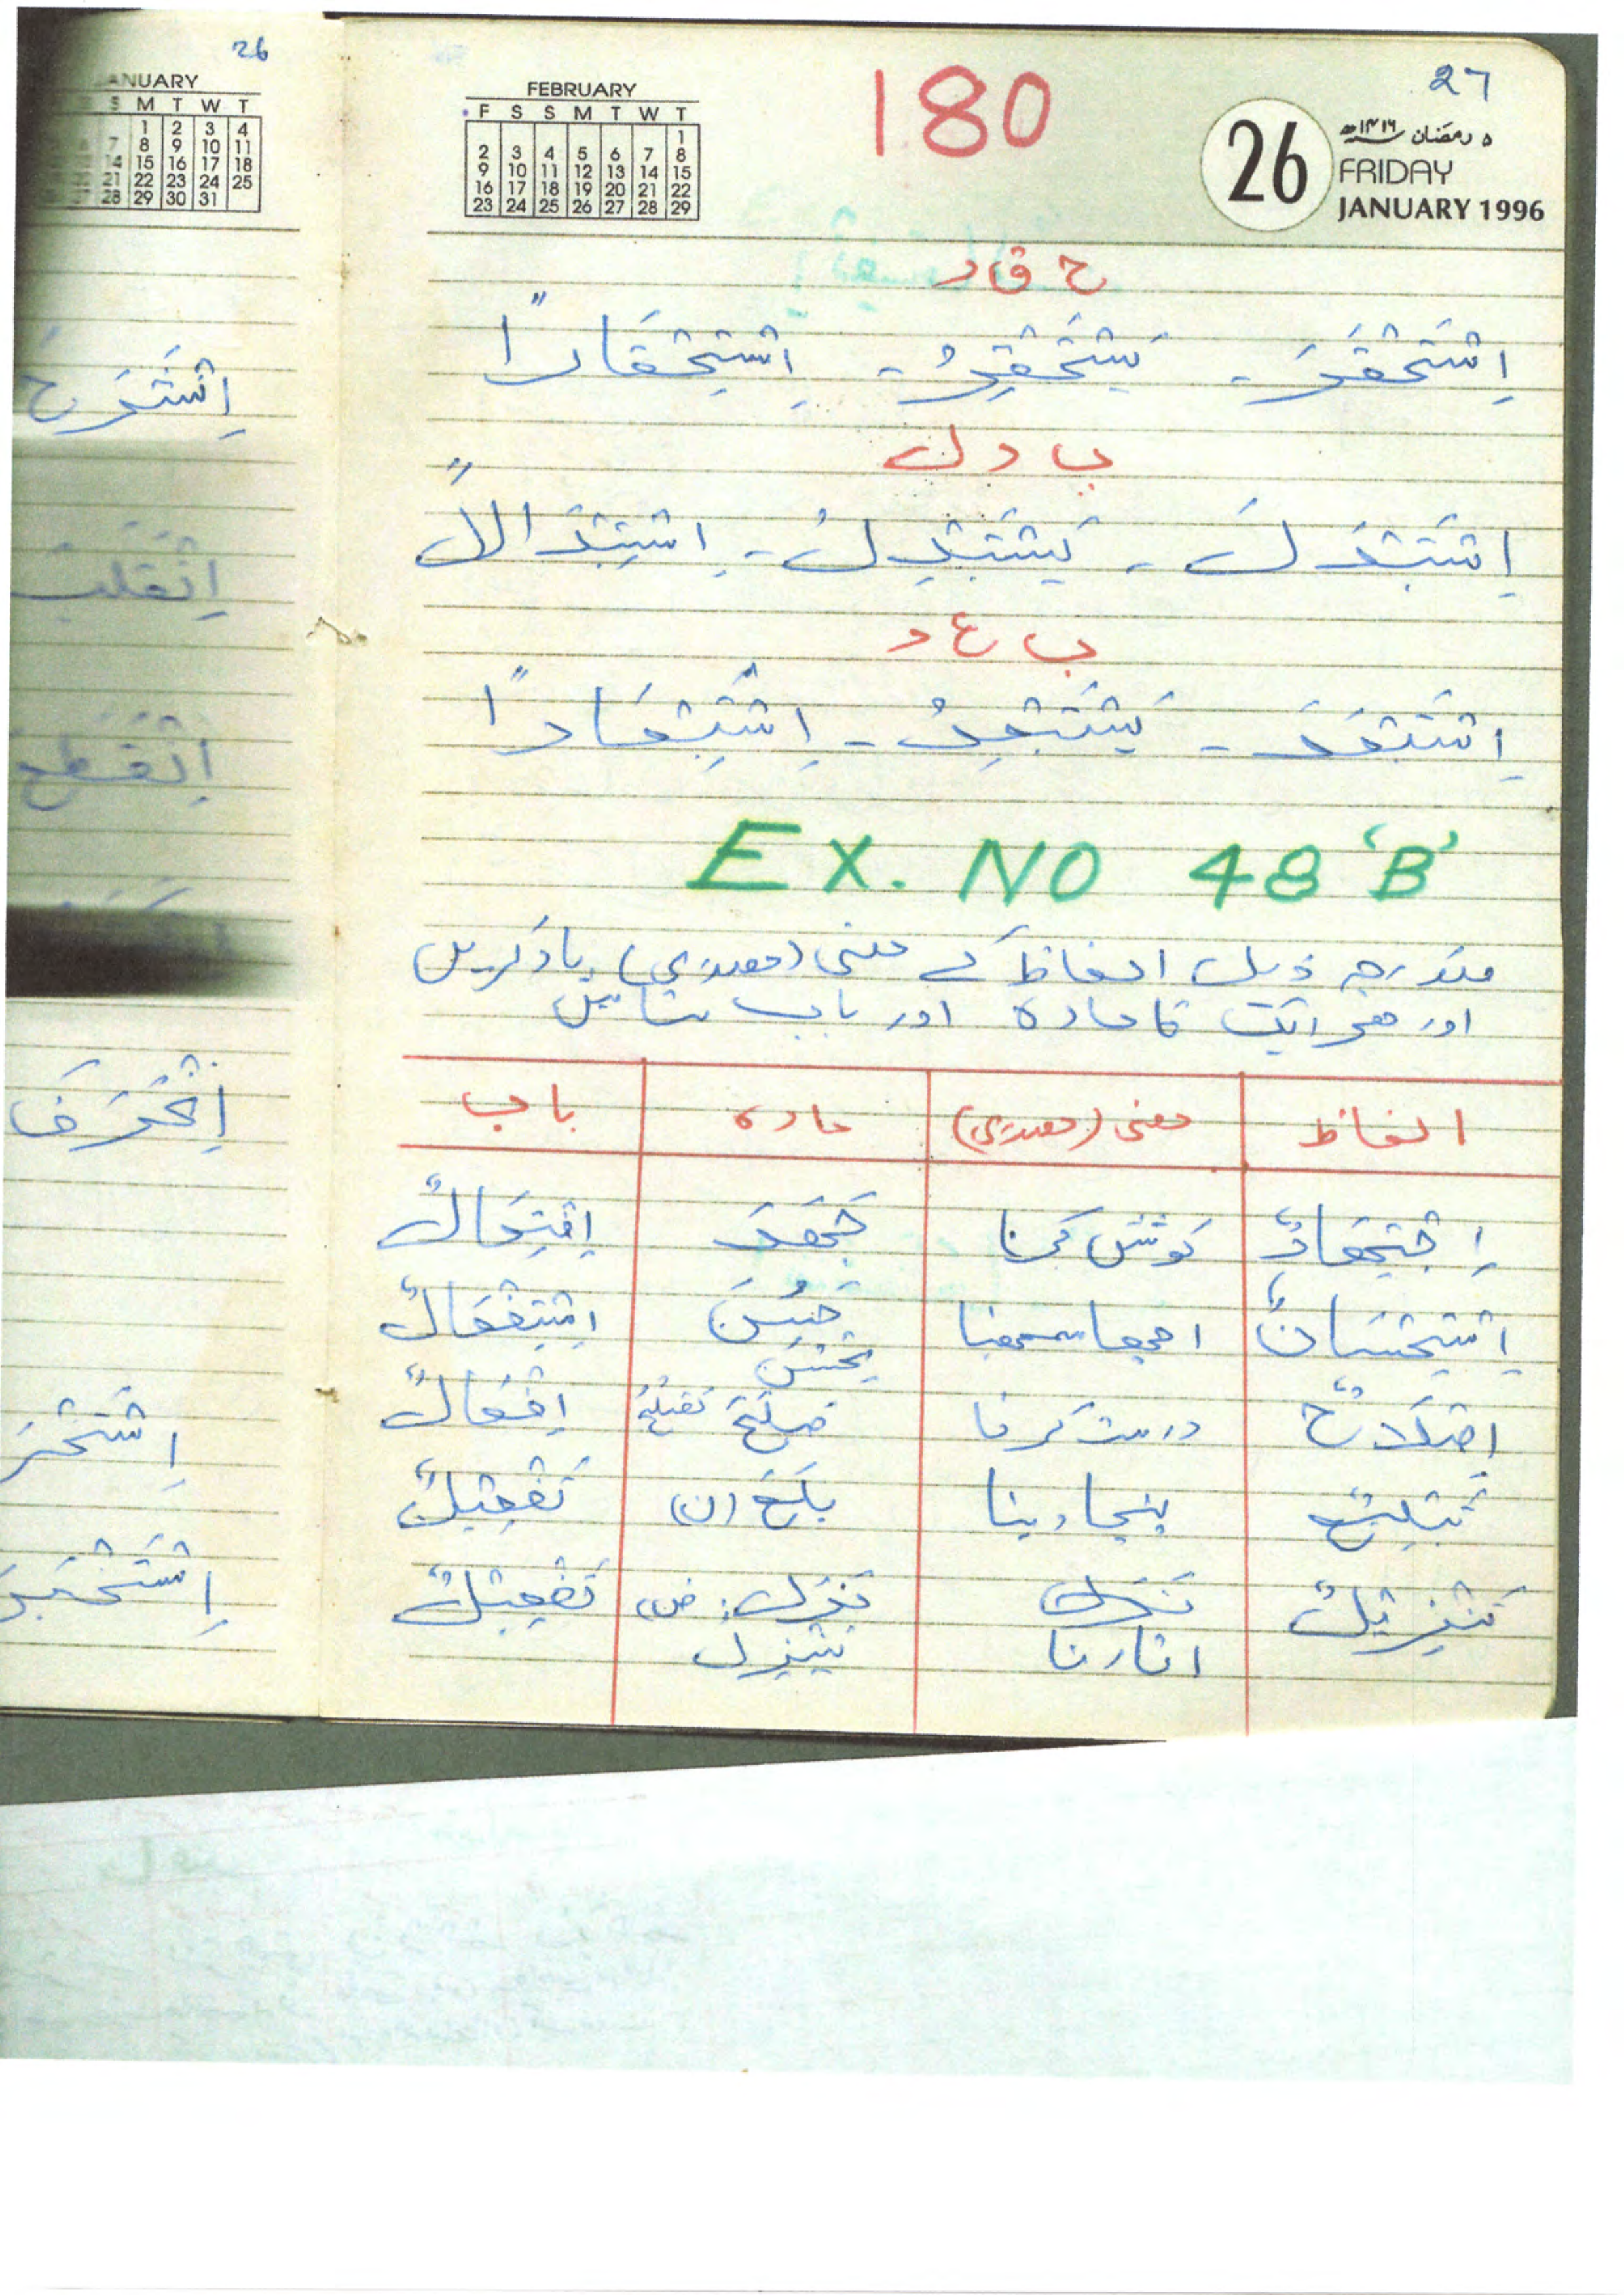 26
JANUARY
S M T W T
1 2 3 4
7 8 9 10 11
14 15 16 17 18
21 22 23 24 25
28 29 30 31
اِنْشَرَحَ
اِنْقَلَبَ
اِنْقَطَعَ
اِنْحَرَفَ
27
180
FEBRUARY
F S S M T W T
1
2 3 4 5 6 7 8
9 10 11 12 13 14 15
16 17 18 19 20 21 22
23 24 25 26 27 28 29
26
۵ رمضان ۱۴۱۶ھ
FRIDAY
JANUARY 1996
ح ق ر
اِسْتَحْقَرَ - يَسْتَحْقِرُ - اِسْتِحْقَارًا
ب د ل
اِسْتَبْدَلَ - يَسْتَبْدِلُ - اِسْتِبْدَالاً
ب ع د
اِسْتَبْعَدَ - يَسْتَبْعِدُ - اِسْتِبْعَادًا
EX. NO 48 'B'
مندرجہ ذیل الفاظ کے معنی (مصدری) یاد کریں
اور ھر ایک کا مادہ اور باب بتائیں
الفاظ معنی (مصدری) مادہ باب
اِجْتِهَادٌ کوشش کرنا جَهَدَ اِفْتِعَالٌ
اِسْتِحْسَانٌ اچھا سمجھنا حَسُنَ اِسْتِفْعَالٌ
يَحْسُنُ
اِصْلَاحٌ درست کرنا صَلَحَ يَصْلُحُ اِفْعَالٌ
تَبْلِيْغٌ پہنچا دینا بَلَغَ (ن) تَفْعِيْلٌ
تَنْزِيْلٌ نَزَّلَ نَزَلَ (ض) تَفْعِيْلٌ
اتارنا يَنْزِلُ